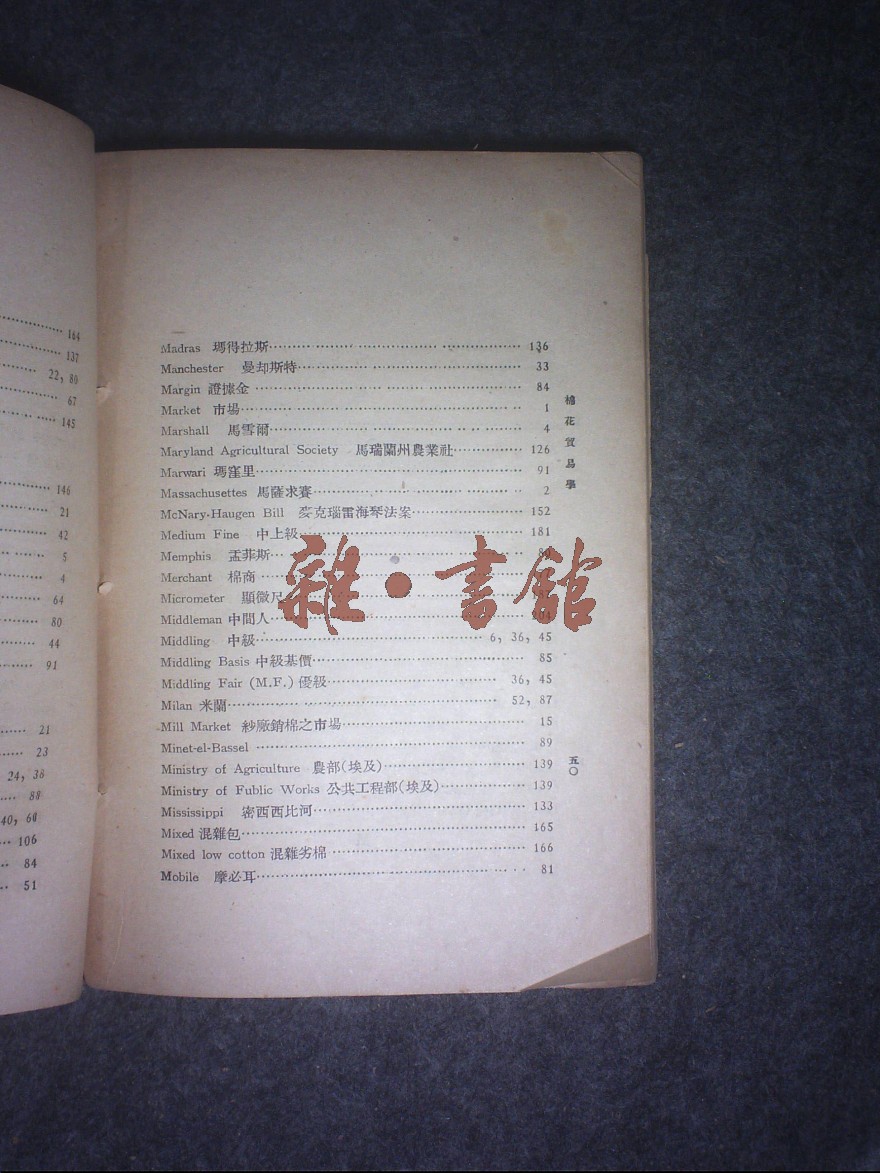 164
137
22, 80
67
145
146
21
42
5
4
64
80
44
91
21
23
24, 38
88
40, 60
106
84
51
Madras 瑪得拉斯 136
Manchester 曼却斯特 33
Margin 證據金 84
Market 市場 1
Marshall 馬雪爾 4
Maryland Agricultural Society 馬瑞蘭州農業社 126
Marwari 瑪窪里 91
Massachusettes 馬薩求賽 2
McNary-Haugen Bill 麥克瑙雷海琴法案 152
Medium Fine 中上級 181
Memphis 孟菲斯
Merchant 棉商
Micrometer 顯微尺
Middleman 中間人 104
Middling 中級 6, 36, 45
Middling Basis 中級基價 85
Middling Fair (M.F.) 優級 36, 45
Milan 米蘭 52, 87
Mill Market 紗廠銷棉之市場 15
Minet-el-Bassel 89
Ministry of Agriculture 農部(埃及) 139
Ministry of Fublic Works 公共工程部(埃及) 139
Mississippi 密西西比河 133
Mixed 混雜包 165
Mixed low cotton 混雜劣棉 166
Mobile 摩必耳 81
棉花貿易學
五〇
雜·書館